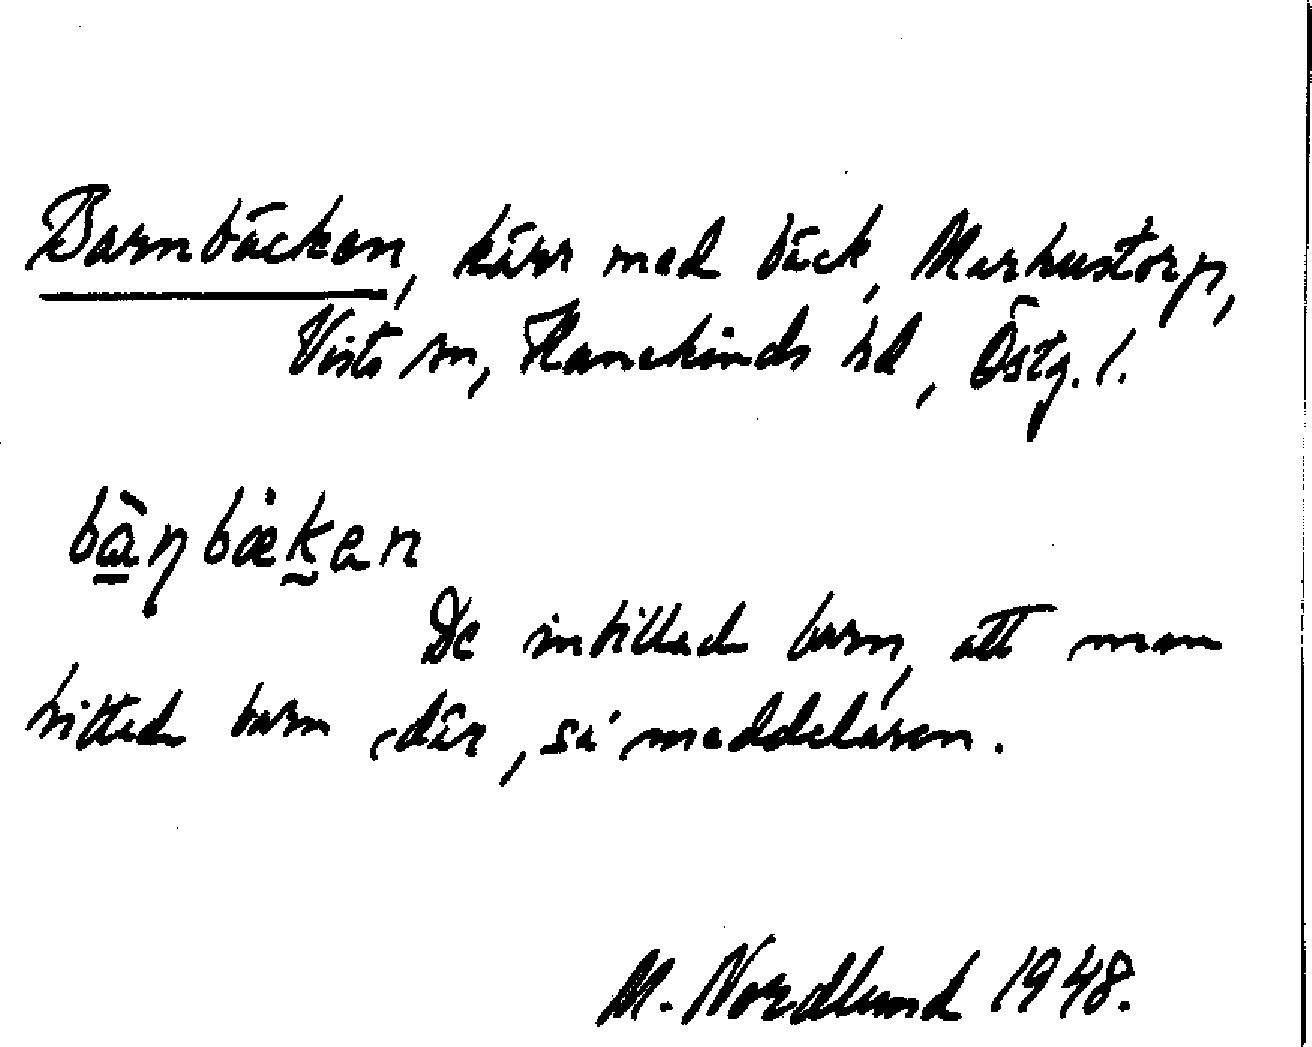 Barnbäcken, kärr med bäck, Markustorp,
Vists sn, Hanekinds hd, Östg. l.
bàṇbæken
De inbillade barn, att man
hittade barn där, sa meddelaren.
M. Nordlund 1948.